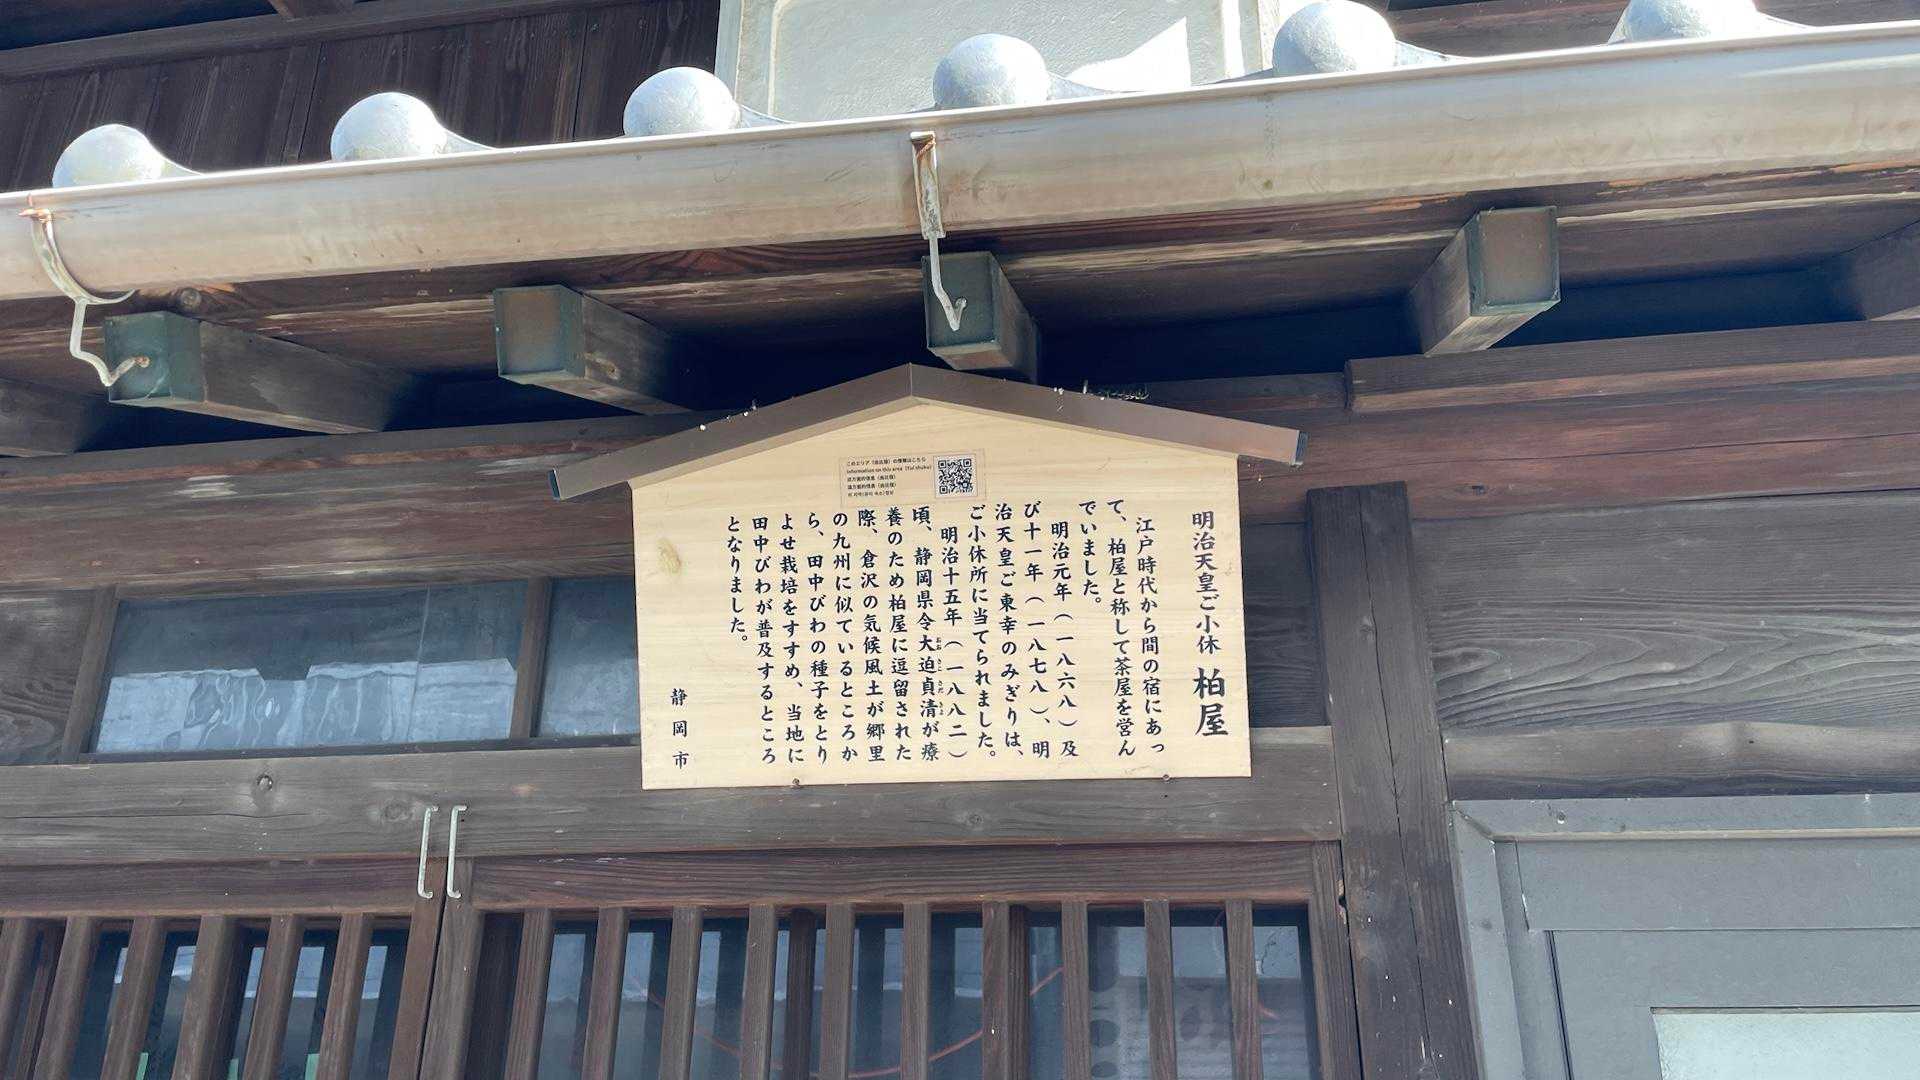 明治天皇ご小休 柏屋
江戸時代から間の宿にあっ
て、柏屋と称して茶屋を営ん
でいました。
明治元年(一八六八)及
び十一年(一八七八)、明
治天皇ご東幸のみぎりは、
ご小休所に当てられました。
明治十五年(一八八二)
頃、静岡県令大迫貞清が療
養のため柏屋に逗留された
際、倉沢の気候風土が郷里
の九州に似ているところか
ら、田中びわの種子をとり
よせ栽培をすすめ、当地に
田中びわが普及するところ
となりました。
静岡市
このエリア(由比宿)の情報はこちら
Information on this area (Yui-shuku)